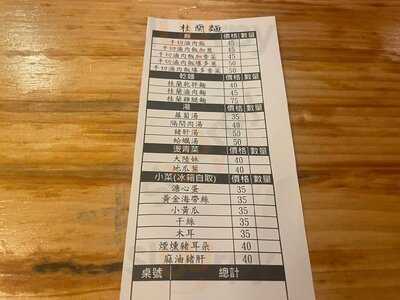 杜蘭麵
飯 價格 數量
手切滷肉飯 45
手切滷肉飯加香菜 45
手切滷肉飯爆多蔥 50
手切滷肉飯爆多香菜 50
乾麵 價格 數量
桂蘭乾拌麵 40
桂蘭滷肉麵 45
桂蘭雞腿麵 75
湯 價格 數量
蘿蔔湯 35
隔間肉湯 40
豬肝湯 50
蛤蠣湯 50
燙青菜 價格 數量
大陸妹 40
地瓜葉 40
小菜(冰箱自取) 價格 數量
溏心蛋 35
黃金海帶絲 35
小黃瓜 35
干絲 35
木耳 35
煙燻豬耳朵 40
麻油豬肝 40
桌號 總計